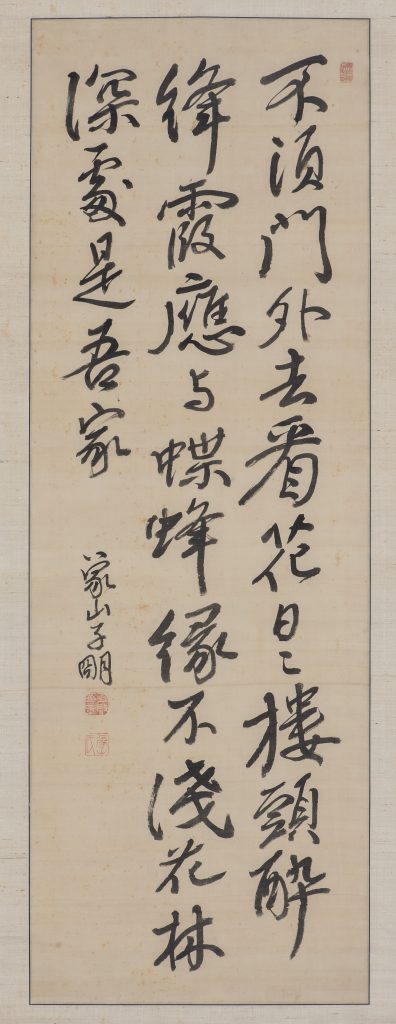 不須門外去看花日〻樓頭醉
絳霞應与蝶蜂緣不淺花林
深處是吾家
山子朙